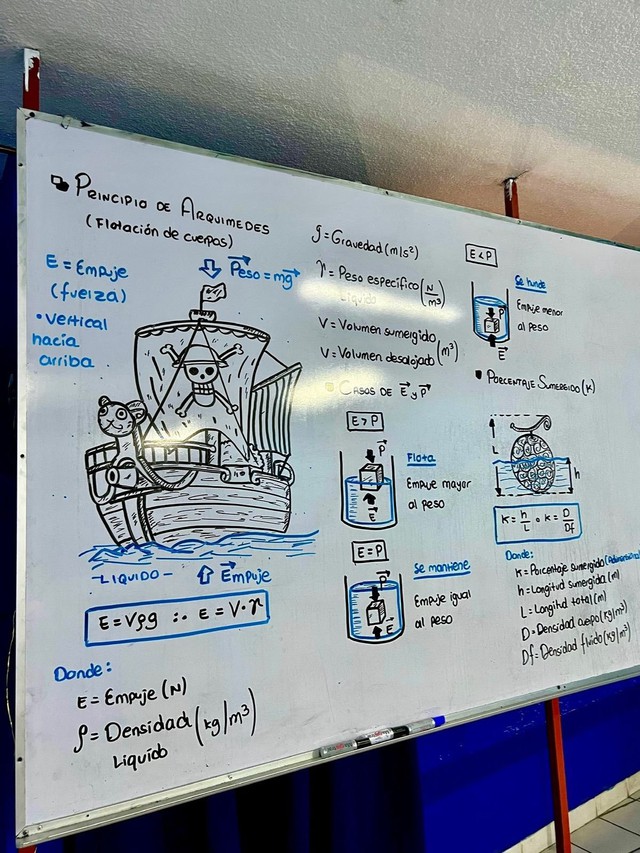 PRINCIPIO DE ARQUIMEDES
(Flotación de cuerpos)
E = Empuje
(fuerza)
• vertical
hacia
arriba
Peso = mg
-LIQUIDO-
Empuje
E = Vρg ∴ E = V·γ
Donde:
E = Empuje (N)
ρ = Densidad (kg/m³)
Liquido
g = Gravedad (m/s²)
γ = Peso específico (N/m³)
Liquido
V = Volumen sumergido
V = Volumen desalojado (m³)
CASOS DE E y P
E > P
P
E
Flota
Empuje mayor
al peso
E = P
P
E
Se mantiene
Empuje igual
al peso
E < P
P
E
Se hunde
Empuje menor
al peso
PORCENTAJE SUMERGIDO (K)
L
h
K = h/L o K = D/Df
Donde:
K = Porcentaje sumergido
h = Longitud sumergida (m)
L = Longitud total (m)
D = Densidad cuerpo (kg/m³)
Df = Densidad fluido (kg/m³)